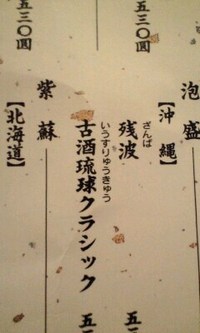 五三〇圓
泡盛
【沖縄】
ざんぱ
残波
五
いうすりゅうきゅう
古酒琉球クラシック
五
五三〇圓
紫蘇
【北海道】